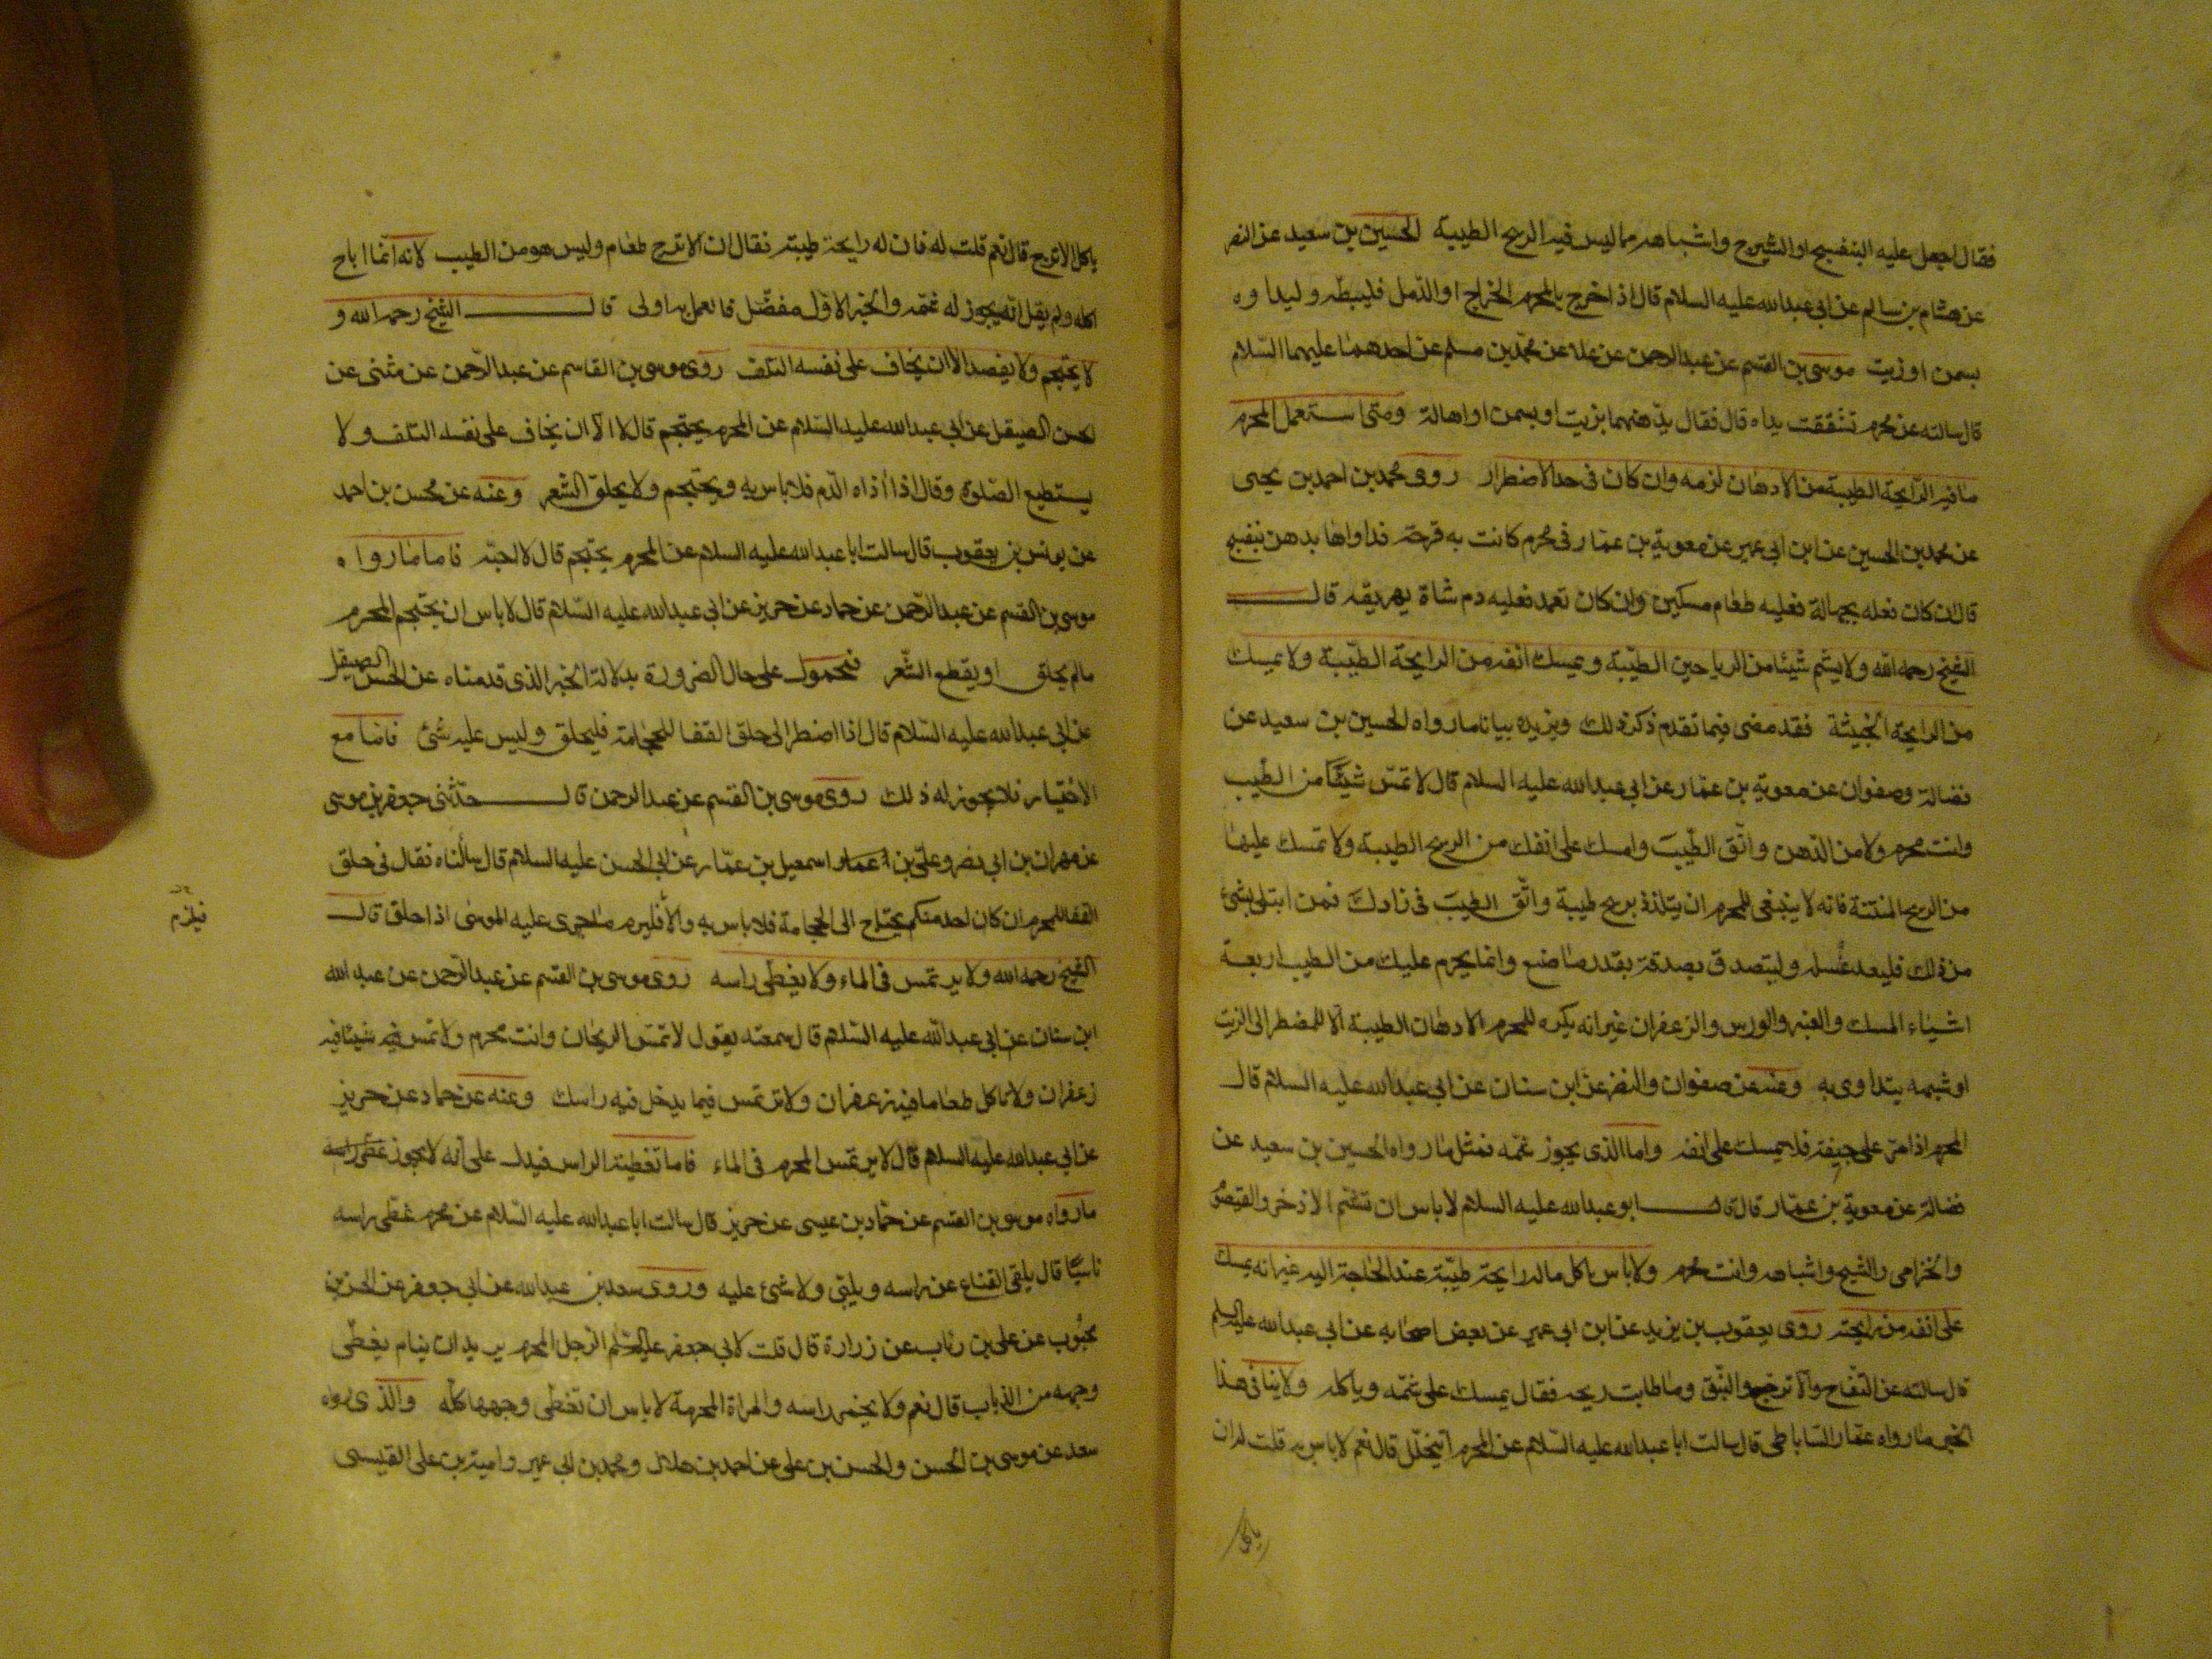 فقال اجعل عليه البنفسج او الشيرج واشباهه مما ليس فيه الريح الطيبة الحسين بن سعيد عن النضر
عن هشام بن سالم عن ابي عبدالله عليه السلام قال اذا خرج بالمحرم الخراج او الدّمل فليبطّه وليداوه
بسمن او زيت موسى بن القسم عن عبدالرحمن عن علا عن محمّد بن مسلم عن احدهما عليهما السّلام
قال سالته عن محرم تشققت يداه قال فقال يدّهنهما بزيت او بسمن او اهالة ومتى استعمل المحرم
ما فيه الرّايحة الطيبة من الادهان لزمه وان كان في حد الاضطرار روى محمد بن احمد بن يحيى
عن محمد بن الحسين عن ابن ابي عمير عن معوية بن عمّار في محرم كانت به قرحة فداواها بدهن بنفسج
قال ان كان فعله بجهالة فعليه طعام مسكين وان كان تعمد فعليه دم شاة يهريقه قال
الشيخ رحمه الله ولا يشم شيئا من الرياحين الطيّبة ويمسك انفه من الرايحة الطيّبة ولا يمسك
من الرايحة الخبيثة فقد مضى فيما تقدم ذكر ذلك ويزيده بيانا ما رواه الحسين بن سعيد عن
فضالة وصفوان عن معوية بن عمّار عن ابي عبدالله عليه السلام قال لا تمسّ شيئًا من الطّيب
وانت محرم ولا من الدّهن واتّق الطّيبَ وامسك على انفك من الريح الطيبة ولا تمسك عليها
من الريح المنتنة فانه لا ينبغي للمحرم ان يتلذذ بريح طيبة واتّق الطيبَ في زادكَ فمن ابتلى بشئ
من ذلك فليعد غُسله وليتصدق بصدقة بقدر ما صنع وانما يحرم عليك من الطيب اربعة
اشياء المسك والعنبر والورس والزعفران غير انه يكره للمحرم الادهان الطيبة الّا للمضطر الى الزيت
او شبهه يتداوى به وعنه عن صفوان والنضر عن ابن سنان عن ابي عبدالله عليه السلام قال
المحرم اذا مرّ على جيفة فلا يمسك على انفه واما الذي يجوز شمّه فمثل ما رواه الحسين بن سعيد عن
فضالة عن معوية بن عمّار قال قال ابو عبدالله عليه السلام لا باس ان تشمّ الاذخر والقيصوم
والخزامى والشيح واشباهه وانت محرم ولا باس باكل ماله رايحة طيّبة عند الحاجة اليه غير انه يمسك
على انفه من رايحته روى يعقوب بن يزيد عن ابن ابي عمير عن بعض اصحابه عن ابي عبدالله عليه السلم
قال سالته عن التفاح والاترج والنبق وما طابت ريحه فقال يمسك على شمّه وياكله ولا ينافي هذا
الخبر ما رواه عمّار السّاباطي قال سالت ابا عبدالله عليه السّلام عن المحرم أيتخلّل قال نعم لا باس به قلت له ان
ياكل
ياكل الاترج قال نعم قلت له فان له رايحة طيبة فقال ان الاترج طعام وليس هو من الطيب لانه انّما اباح
اكله ولم يقل انّه يجوز له شمّه والخبر الاوّل مفصّل فالعمل به اولى قال الشيخ رحمه الله و
لا يحتجم ولا يفصد الا ان يخاف على نفسه التلف روى موسى بن القاسم عن عبدالرّحمن عن مثنى عن
الحسن الصيقل عن ابي عبدالله عليه السّلام عن المحرم يحتجم قال لا الّا ان يخاف على نفسه التلف ولا
يستطيع الصّلوة وقال اذا اذاه الدّم فلا باس به ويحتجم ولا يحلق الشّعر وعنه عن محسن بن احمد
عن يونس بن يعقوب قال سالت ابا عبدالله عليه السلام عن المحرم يحتجم قال لا احبّه فاما ما رواه
موسى بن القسم عن عبدالرّحمن عن حماد عن حريز عن ابي عبدالله عليه السّلام قال لا باس ان يحتجم المحرم
مالم يحلق او يقطع الشّعر فمحمول على حال الضرورة بدلالة الخبر الذي قدمناه عن الحسن الصيقل
عن ابي عبدالله عليه السّلام قال اذا اضطر الى حلق القفا للحجامة فليحلق وليس عليه شئ فاما مع
الاختيار فلا يجوز له ذلك روى موسى بن القسم عن عبدالرحمن قال حدّثني جعفر بن موسى
عن مهران بن ابي نصر وعلى بن اسمعيل بن عمّار عن ابي الحسن عليه السلام قال سألناه فقال في حلق
القفا للمحرم ان كان احد منكم يحتاج الى الحجامة فلا باس به والّا فليزم ما جرى عليه الموسى اذا حلق قال
فيلزم
الشيخ رحمه الله ولا يرتمس في الماء ولا يغطّى راسه روى موسى بن القسم عن عبدالرّحمن عن عبدالله
ابن سنان عن ابي عبدالله عليه السّلام قال سمعته يقول لا تمسّ الريحان وانت محرم ولا تمسّ شيئا فيه
زعفران ولا تاكل طعاما فيه زعفران ولا ترتمس فيما يدخل فيه راسك وعنه عن حماد عن حريز
عن ابي عبدالله عليه السلام قال لا يرتمس المحرم في الماء فاما تغطية الراس فيدل على انّه لا يجوز
ما رواه موسى بن القسم عن حمّاد بن عيسى عن حريز قال سالت ابا عبدالله عليه السّلام عن محرم غطّى راسه
ناسيًا قال يلقى القناع عن راسه ويلبّى ولا شئ عليه وروى سعد بن عبدالله عن ابي جعفر عن الحسن بن
محبوب عن على بن رئاب عن زرارة قال قلت لابي جعفر عليه السلم الرّجل المحرم يريد ان ينام يغطّى
وجهه من الذباب قال نعم ولا يخمر راسه والمراة المحرمة لا باس ان تغطّى وجهها كلّه والذي رواه
سعد عن موسى بن الحسن والحسن بن على عن احمد بن هلال ومحمد بن ابي عمير وامية بن على القيسى